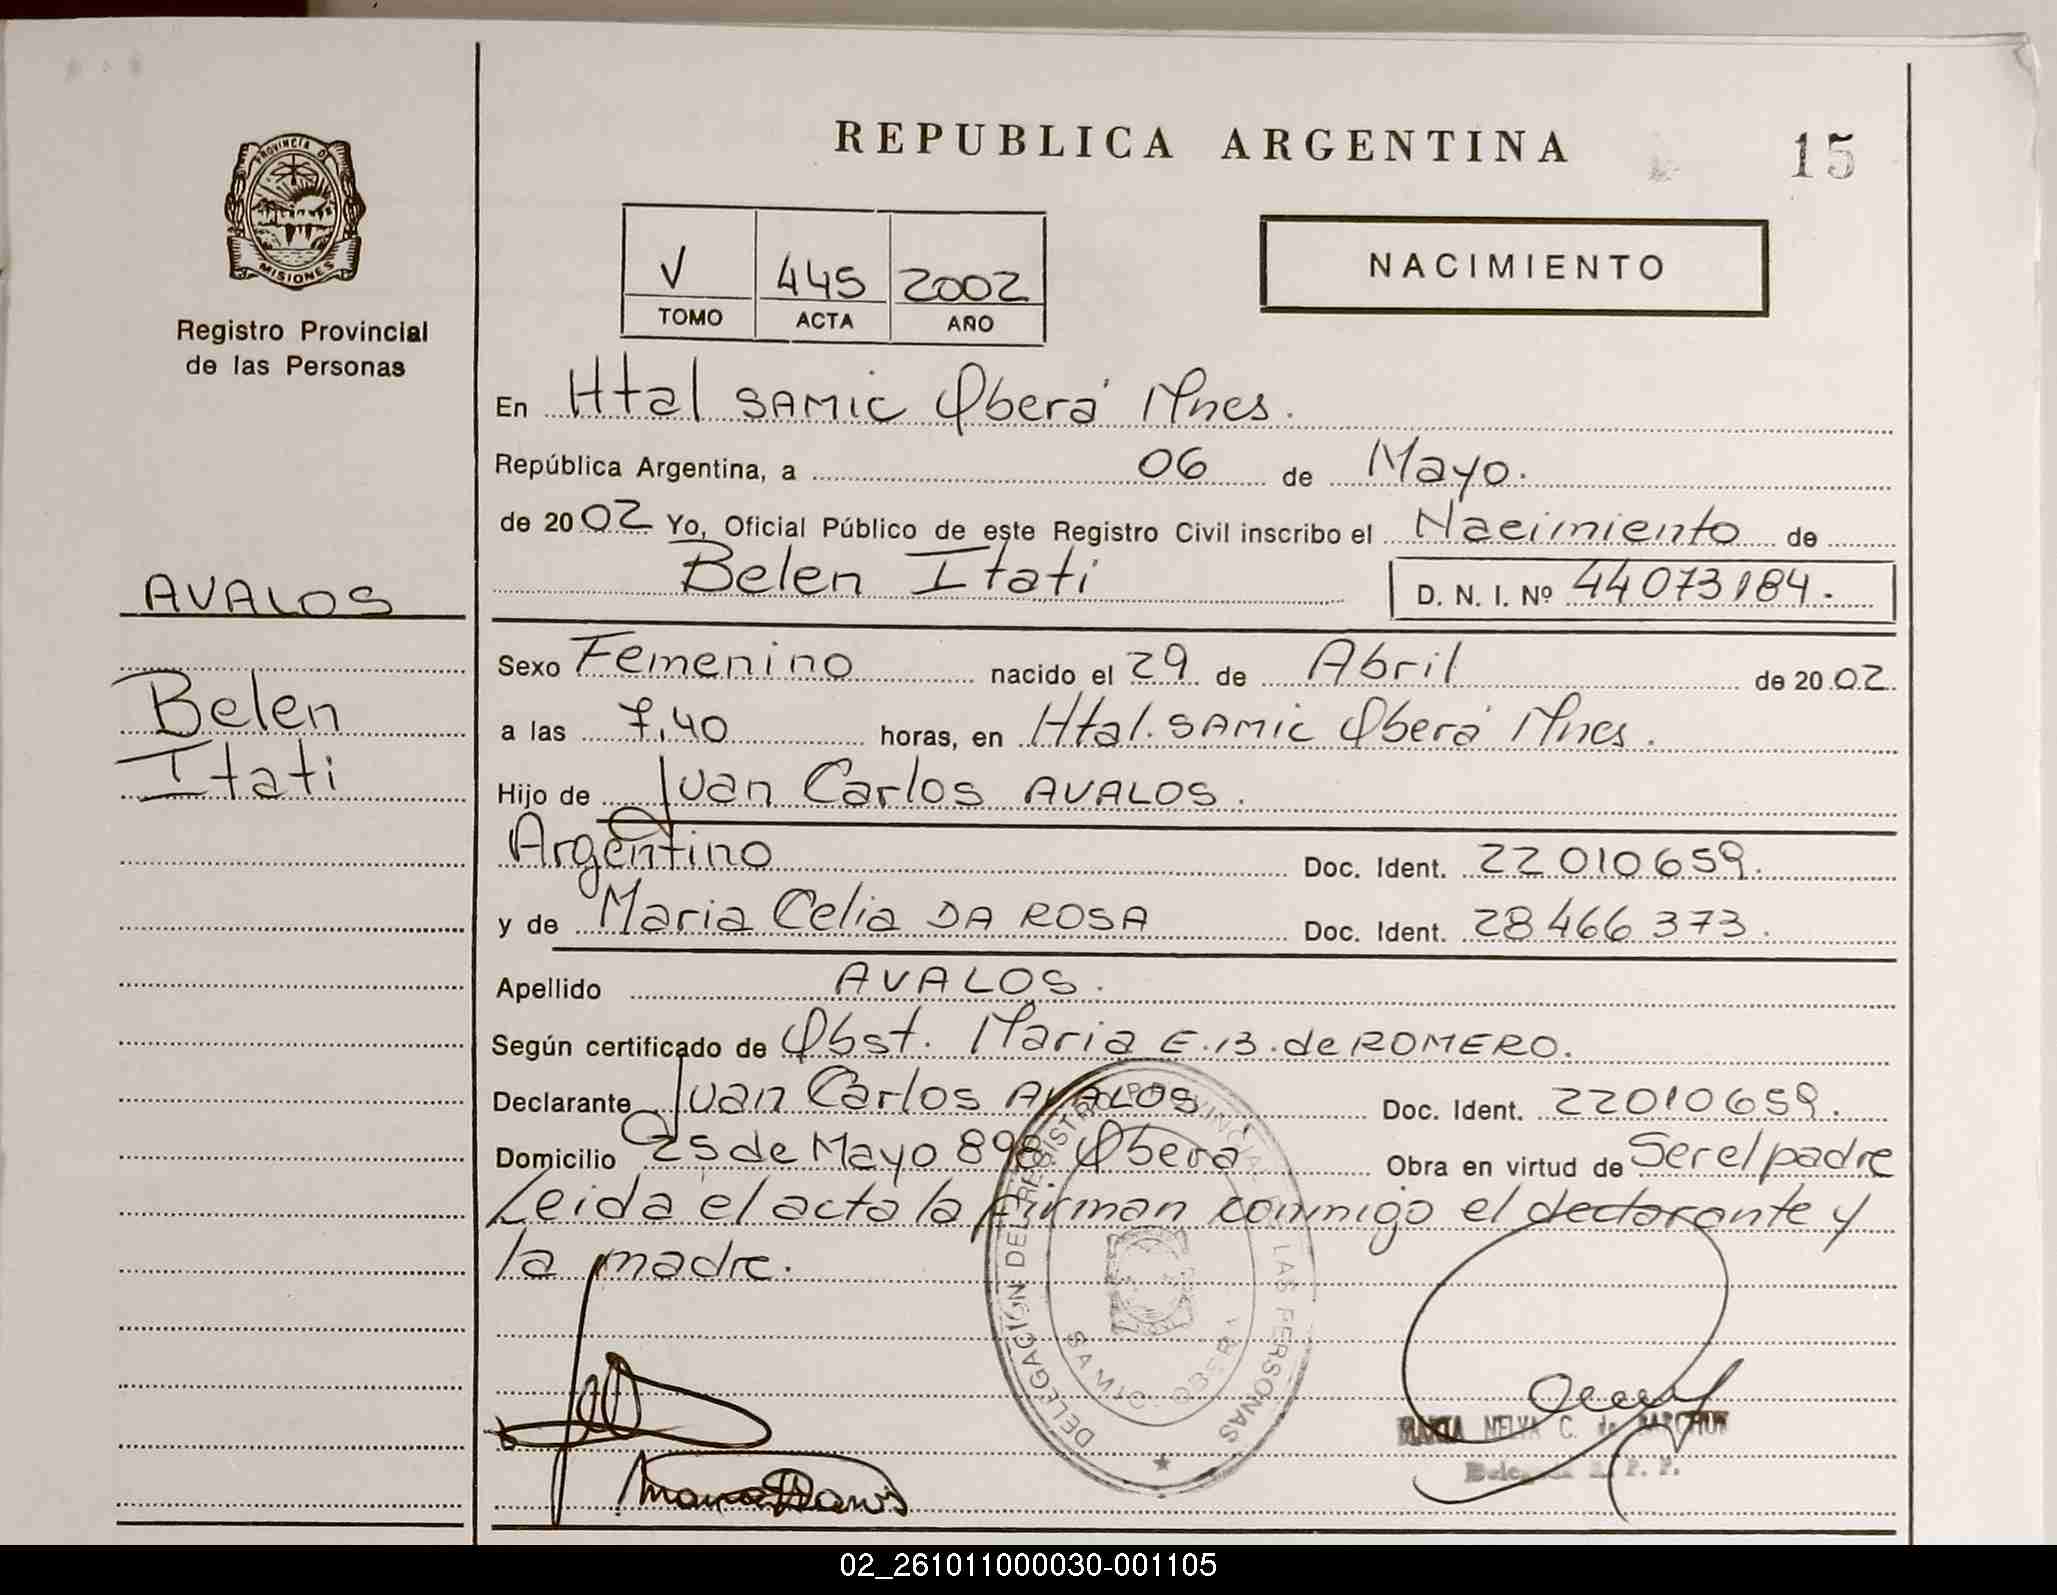 REPUBLICA ARGENTINA
15
PROVINCIA D
MISIONES
Registro Provincial
de las Personas
V 445 2002
TOMO ACTA AÑO
NACIMIENTO
En Htal SAMIC Oberá Mnes.
República Argentina, a 06 de Mayo.
de 2002 Yo, Oficial Público de este Registro Civil inscribo el Nacimiento de
Belen Itati D. N. I. Nº 44073184.
AVALOS
Belen
Itati
Sexo Femenino nacido el 29 de Abril de 2002.
a las 7,40 horas, en Htal. SAMIC Oberá Mnes.
Hijo de Juan Carlos AVALOS.
Argentino Doc. Ident. 22010659.
y de Maria Celia DA ROSA Doc. Ident. 28466373.
Apellido AVALOS.
Según certificado de Obst. Maria E.B. de ROMERO.
Declarante Juan Carlos AVALOS Doc. Ident. 22010659.
Domicilio 25 de Mayo 898. Oberá Obra en virtud de Ser el padre
Leida el acta la firman conmigo el declarante y
la madre.
DELEGACIÓN DEL REGISTRO PROVINCIAL DE LAS PERSONAS
SAMIC. OBERA
NELVA C. de
R. P. P.
02_261011000030-001105